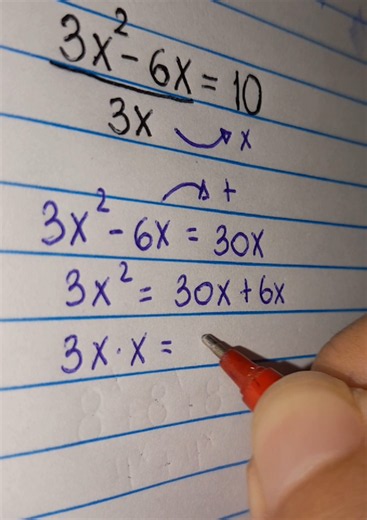 3x² - 6x = 10
3x
x
+
3x² - 6x = 30x
3x² = 30x + 6x
3x · x =